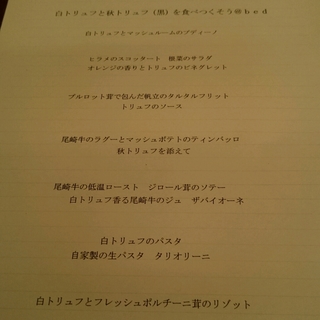 白トリュフと秋トリュフ（黒）を食べつくそう＠ｂｅｄ
白トリュフとマッシュルームのブディーノ
ヒラメのスコッタート　根菜のサラダ
オレンジの香りとトリュフのビネグレット
プルロット茸で包んだ帆立のタルタルフリット
トリュフのソース
尾崎牛のラグーとマッシュポテトのティンバッロ
秋トリュフを添えて
尾崎牛の低温ロースト　ジロール茸のソテー
白トリュフ香る尾崎牛のジュ　ザバイオーネ
白トリュフのパスタ
自家製の生パスタ　タリオリーニ
白トリュフとフレッシュポルチーニ茸のリゾット